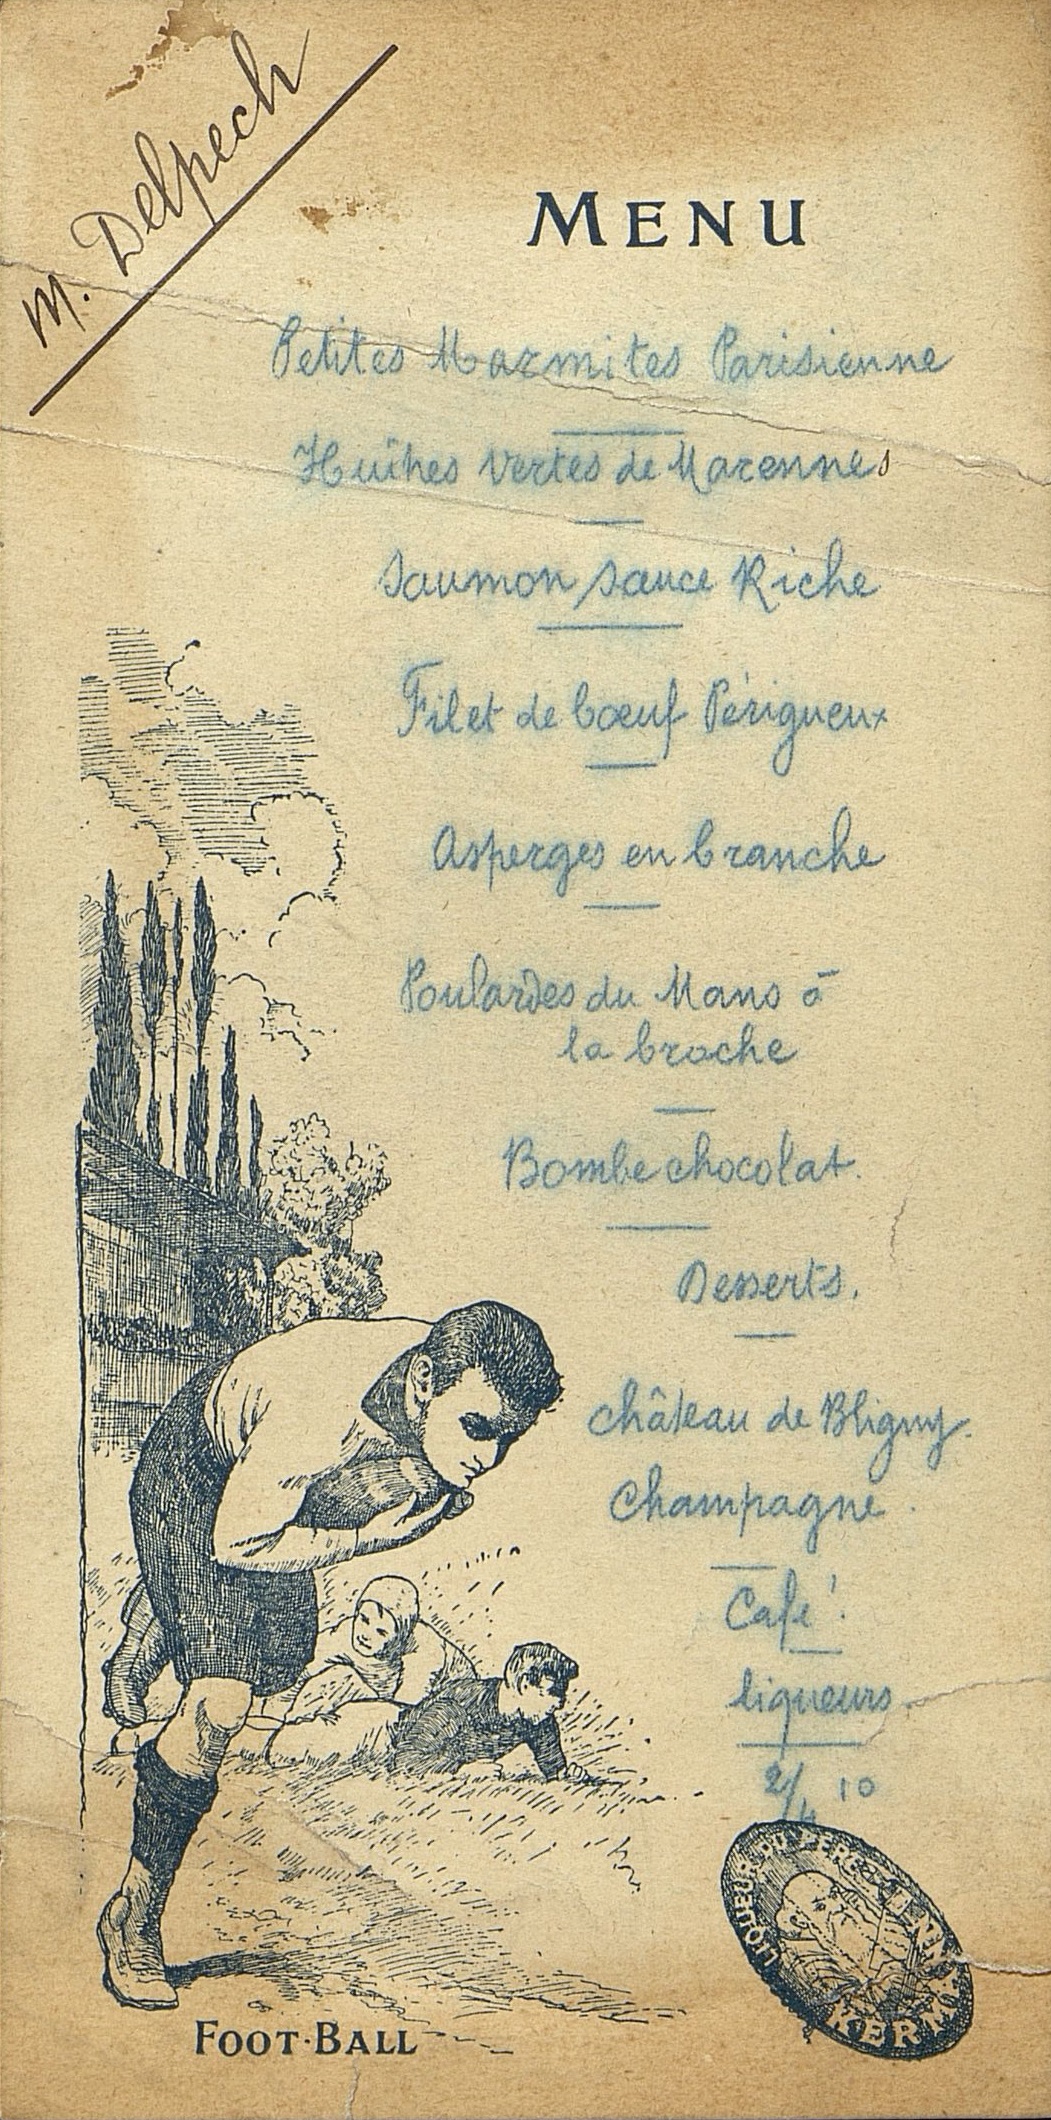 M. Delpech
MENU
Petites Marmites Parisienne
Huîtres Vertes de Marennes
Saumon sauce Riche
Filet de bœuf Périgueux
Asperges en branche
Poulardes du Mans à
la broche
Bombe chocolat.
Desserts.
Château de Bligny.
Champagne.
Café.
liqueurs.
2/4 10
LIQUEUR DU PÈRE KERMANN
FOOT-BALL